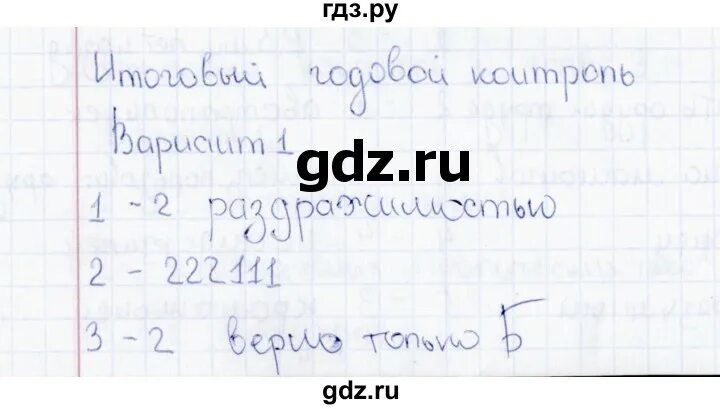 гдз.ру
Итоговый годовой контроль
Вариант 1
gdz.ru
1 - 2 раздражимостью
2 - 222111
3 - 2 верно только Б
gdz.ru